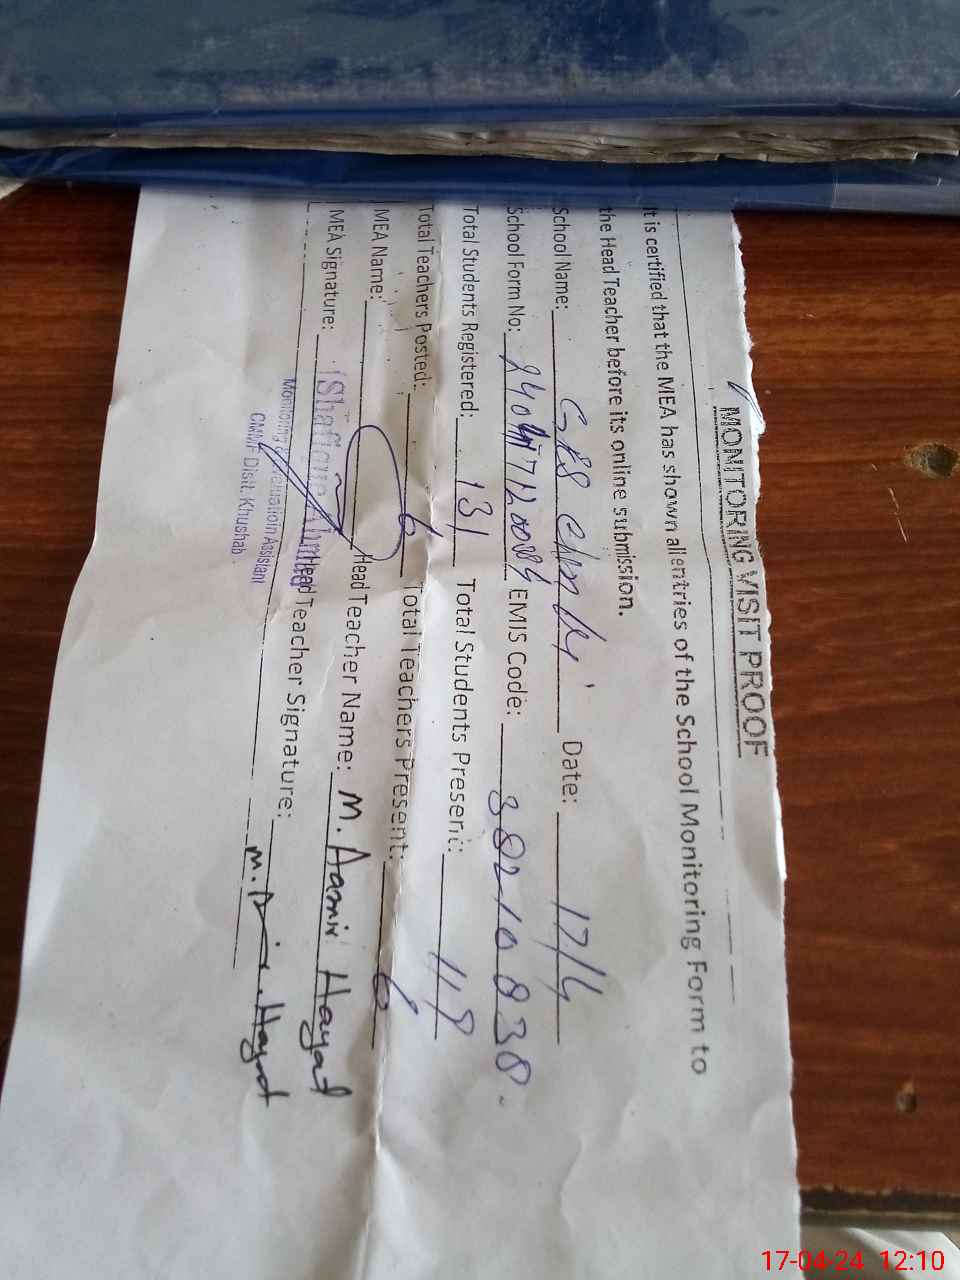 MONITORING VISIT PROOF
It is certified that the MEA has shown all entries of the School Monitoring Form to
the Head Teacher before its online submission.
School Name: GES Date: 17/4
School Form No: EMIS Code: 38210838.
Total Students Registered: 131 Total Students Present: 118
Total Teachers Posted: 6 Total Teachers Present: 6
MEA Name: Head Teacher Name: M. Aamir Hayat
MEA Signature: Head Teacher Signature: M. Hayat
Monitoring Assistant
CMMF Distt. Khushab
17-04-24 12:10